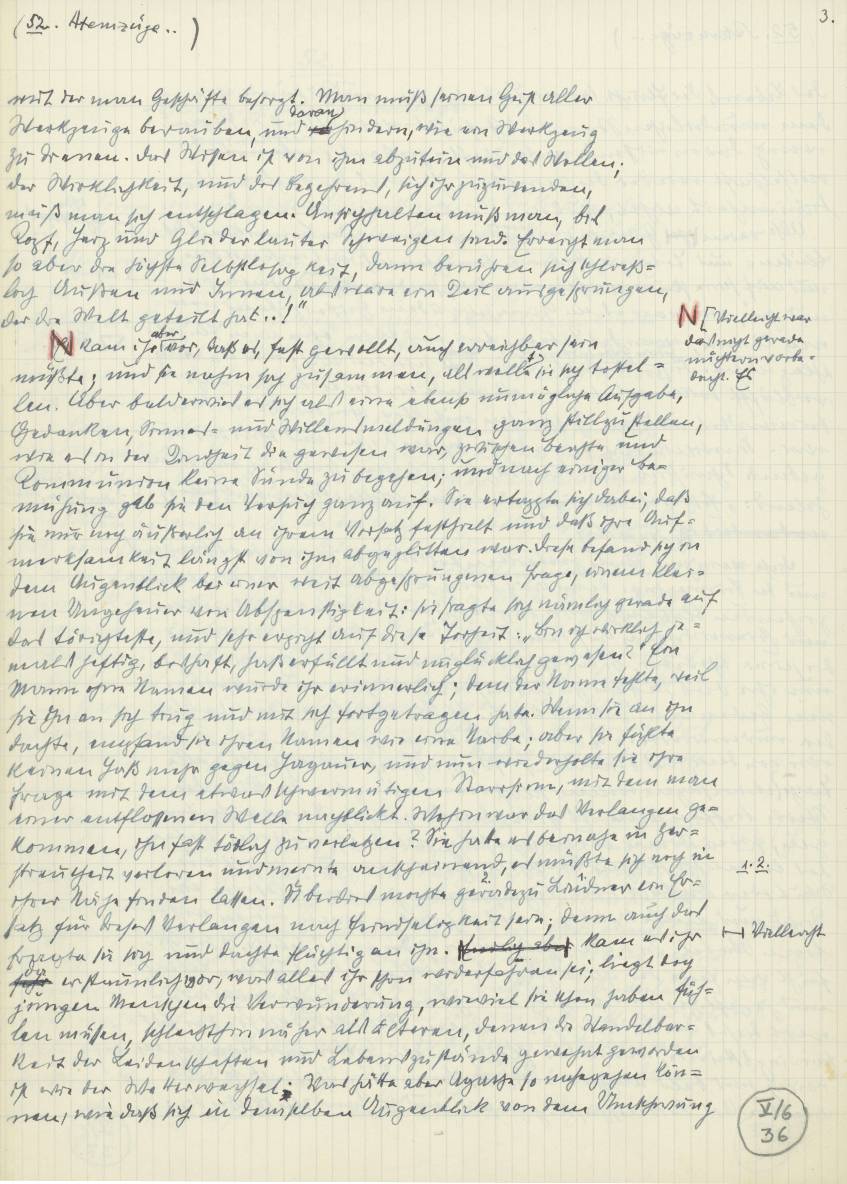 (52. Atemzüge..)
3.
mit der man Geschäfte besorgt. Man muß seinen Geist aller
Werkzeuge berauben, und daran hindern, wie ein Werkzeug
zu dienen. Das Wissen ist von ihm abzutun und das Wollen;
der Wirklichkeit, und des Begehrens, sich ihr zuzuwenden,
muß man sich entschlagen. Ansichhalten muß man, bis
Kopf, Herz und Glieder lauter Schweigen sind. Erreicht man
so aber die höchste Selbstlosigkeit, dann berühren sich schließ=
lich Außen und Innen, als wäre ein Keil ausgesprungen,
der die Welt geteilt hat..!"
N kam ihr aber vor, daß es, fest gewollt, auch erreichbar sein
müßte; und sie nahm sich zusammen, als wollte sie sich tot stel=
len. Aber bald erwies es sich als eine ebenso unmögliche Aufgabe,
Gedanken, Sinnes= und Willensmeldungen ganz stillzustellen,
wie es in der Kindheit die gewesen war, zwischen Beichte und
Kommunion keine Sünde zu begehen; und nach einiger Be=
mühung gab sie den Versuch ganz auf. Sie ertappte sich dabei, daß
sie nur noch äußerlich an ihrem Vorsatz festhielt und daß ihre Auf=
merksamkeit längst von ihm abgeglitten war. Diese befand sich in
dem Augenblick bei einer weit abgesprungenen Frage, einem klei=
nen Ungeheuer von Abspenstigkeit: sie fragte sich nämlich gerade auf
das törichteste, und sehr erpicht auf diese Torheit: „Bin ich wirklich je=
mals heftig, boshaft, haßerfüllt und unglücklich gewesen?" Ein
Mann ohne Namen wurde ihr erinnerlich; dem der Name fehlte, weil
sie ihn an sich trug und mit sich fortgetragen hatte. Wenn sie an ihn
dachte, empfand sie ihren Namen wie eine Narbe; aber sie fühlte
keinen Haß mehr gegen Hagauer, und nun wiederholte sie ihre
Frage mit dem etwas schwermütigen Starrsinn, mit dem man
einer entflossenen Welle nachblickt. Wohin war das Verlangen ge=
kommen, ihn fast tödlich zu verletzen? Sie hatte es beinahe in Zer=
streutheit verloren und meinte anscheinend, es müßte sich noch in
ihrer Nähe finden lassen. Überdies mochte geradezu Lindner ein Er=
satz für dieses Verlangen nach Feindseligkeit sein; denn auch das
fragte sie sich und dachte flüchtig an ihn. kam es ihr
erstaunlich vor, was alles ihr schon widerfahren sei; liegt doch
jungen Menschen die Verwunderung, wieviel sie schon haben füh=
len müssen, schlechthin näher als älteren, denen die Wandelbar=
keit der Leidenschaften und Lebenszustände gewohnt geworden
ist wie der Wetterwechsel. Was hätte aber Agathe so nahegehen kön=
nen, wie daß sich in demselben Augenblick von dem Umschwung
N [Vielleicht war
das nicht gerade
nüchtern vorbe=
dacht. Es
1. 2.
Vielleicht
V/6
36